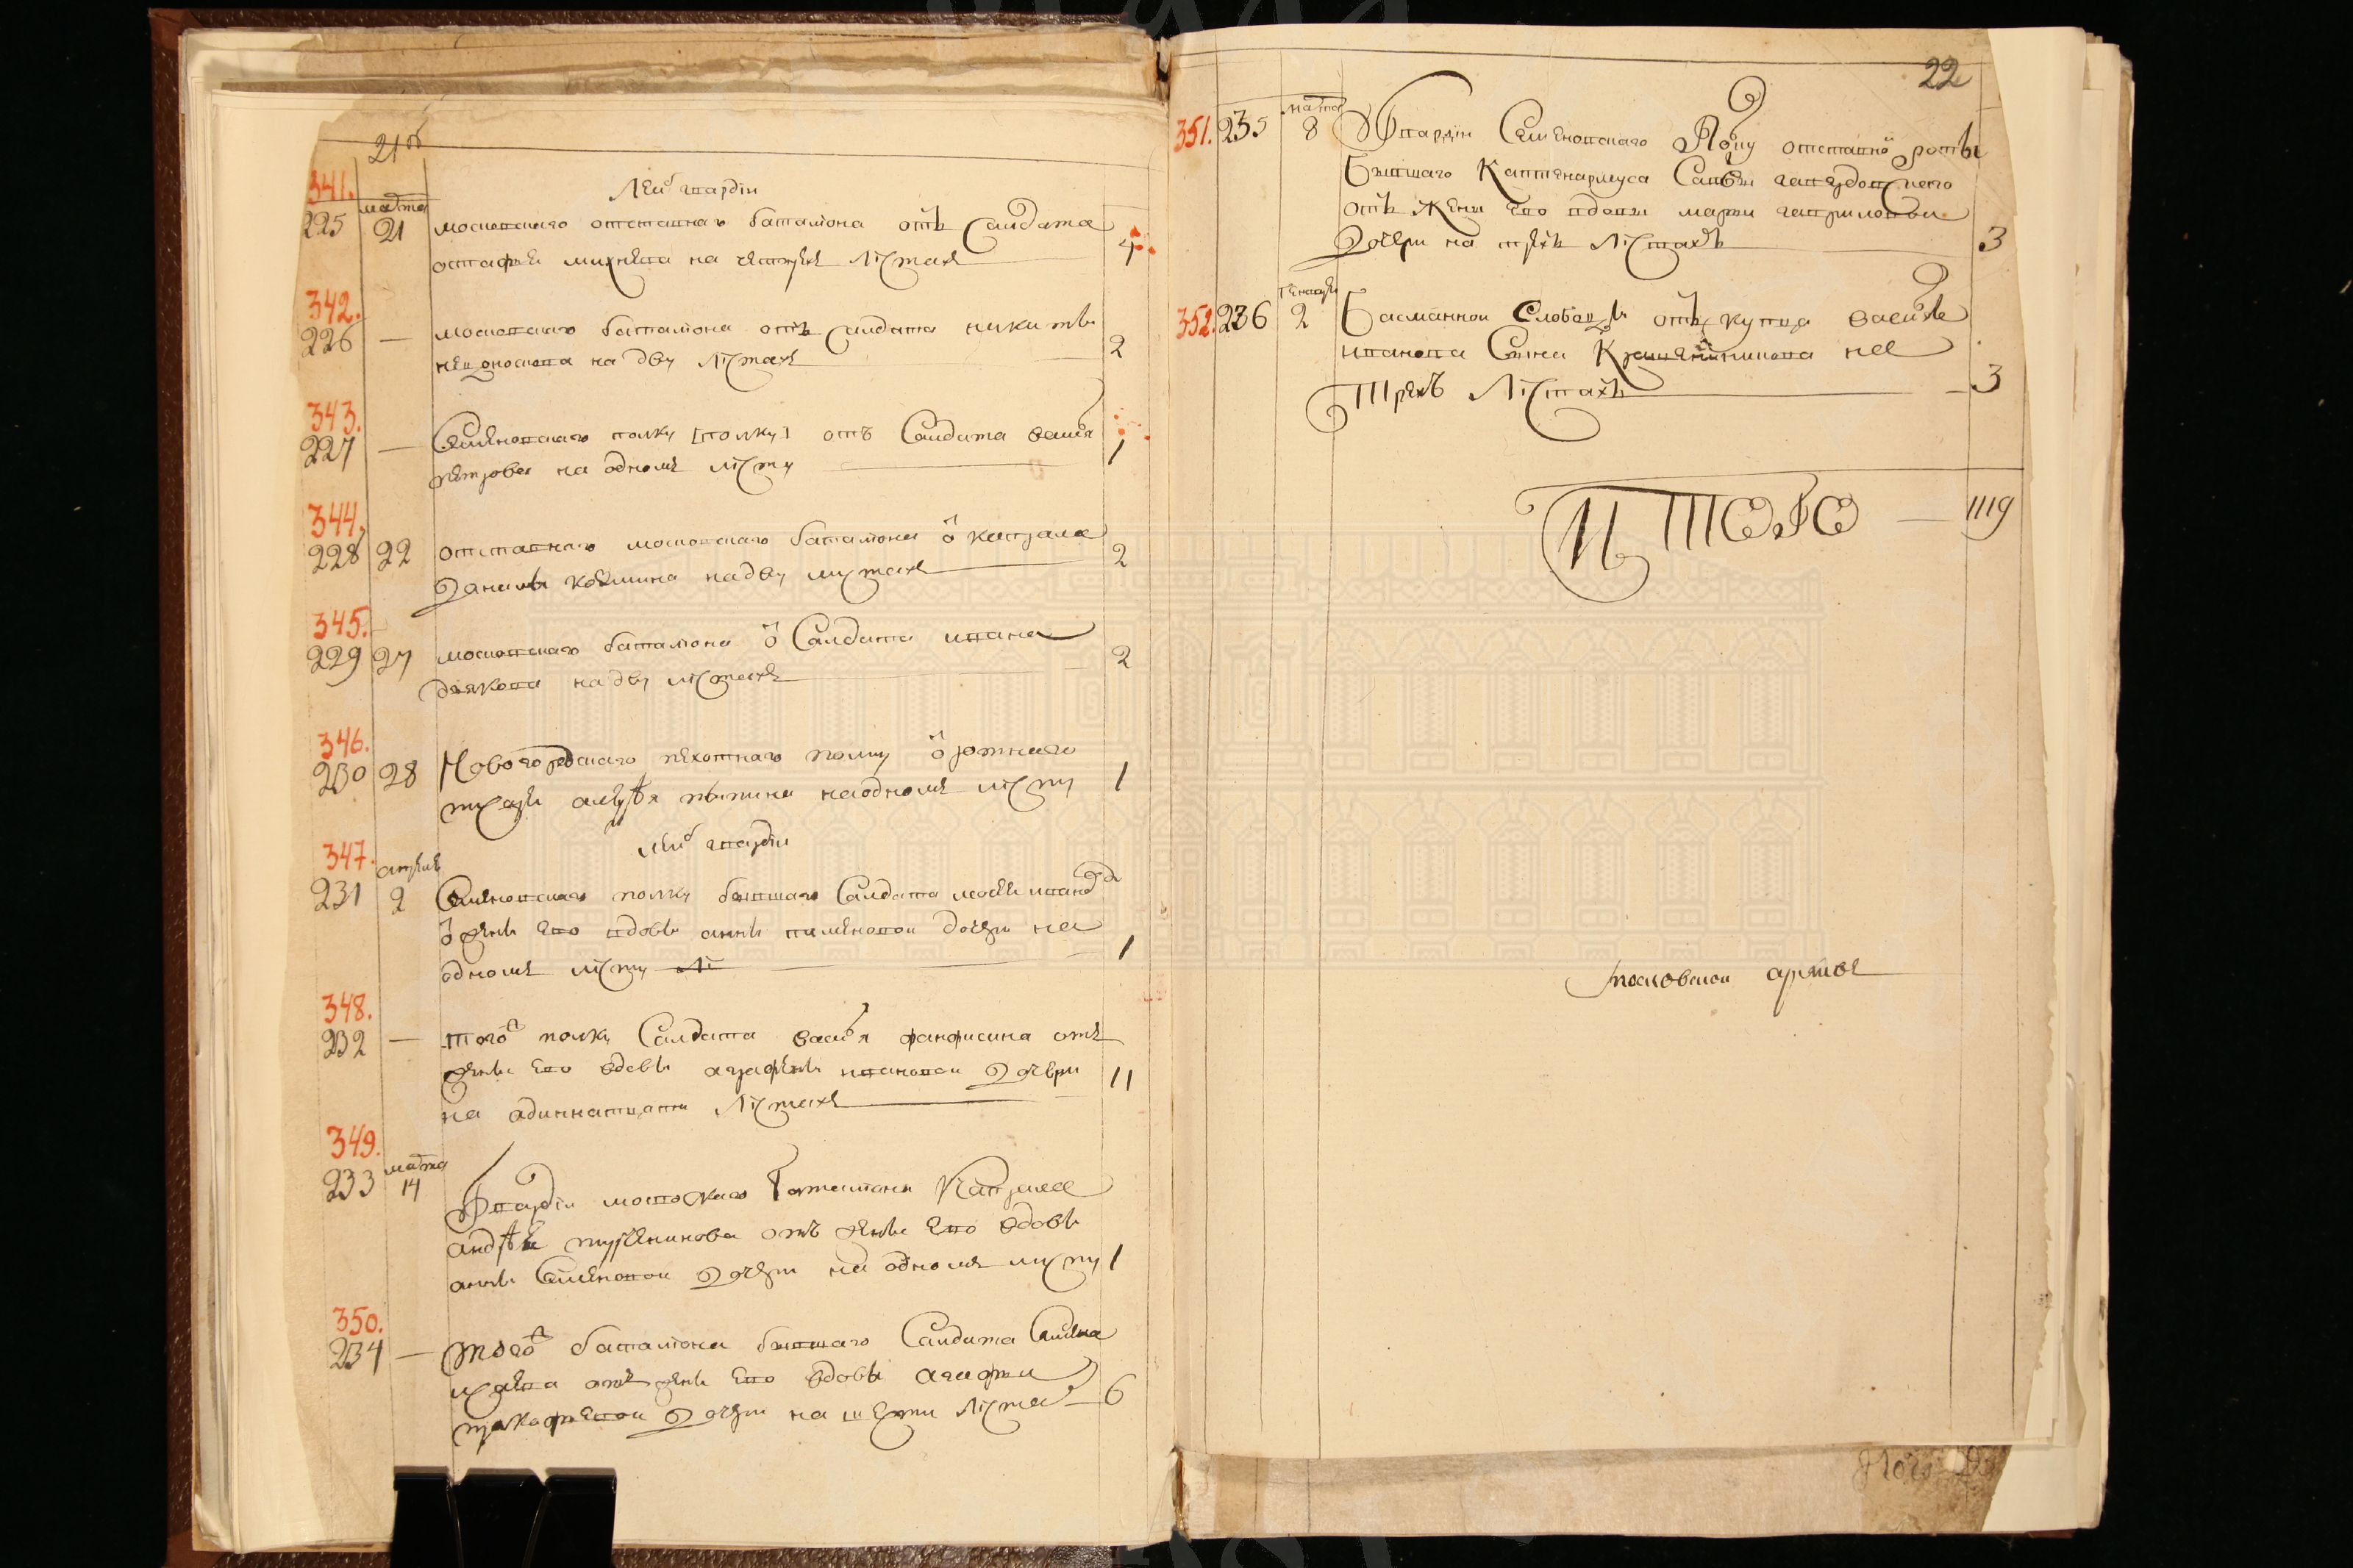 21 об
341.
Леиб гвардiи
225 марта 21 московского отставнаго баталиона отъ Салдата
остафьи михнева на четырех лiстах 4
342.
226 — московскаго баталиона отъ салдата никиты
на дву лiстах 2
343.
227 — Семеновскаго полку [полку] отъ Салдата васил'я
петрова на одном лiсту 1
344.
228 22 отставнаго московскаго баталиона о капрала
Данилы козмина на дву листах 2
345.
229 27 московскаго баталиона о Салдата ивана
дьякова на дву лiстах 2
346.
230 28 Новогородскаго пехотнаго полку о ротнаго
писаря алеѯѣя пыпина на одном лiсту 1
Леиб гвардiи
347. апреля
231 2 Семеновскаго полку бывшаго Салдата
о жены ево вдовы анны пименовои дочери на
одном лiсту 1
348.
232 — того ж полку Салдата васил'я фанфисина отъ
жены ево вдовы аграфены ивановои Дочери 11
на адиннатцати Лiстах
349.
233 марта 14 гвардiи московскаго баталиона Капрала
андрѣя отъ жены ево вдовы
анны Семеновои Дочери на одном листу 1
350.
234 — того ж баталиона бывшаго Салдата Семена
исаева отъ жены ево вдовы агафьи
пракофьевои Дочери на шести Лiста 6
22
351. 235 марта 8 гвардiи Семеновскаго Полку отставнои роты
Бывшаго Каптенармуса Савы
отъ Жены ево вдовы марьи гавриловы
Дочери на трех Лiстахъ 3
352. 236 генваря 2 Басманнои Слободы отъ купца василья
иванова Сына Крашенинникова на
Трехъ Лiстахъ 3
ИТОГО — 1119
московскои архивъ